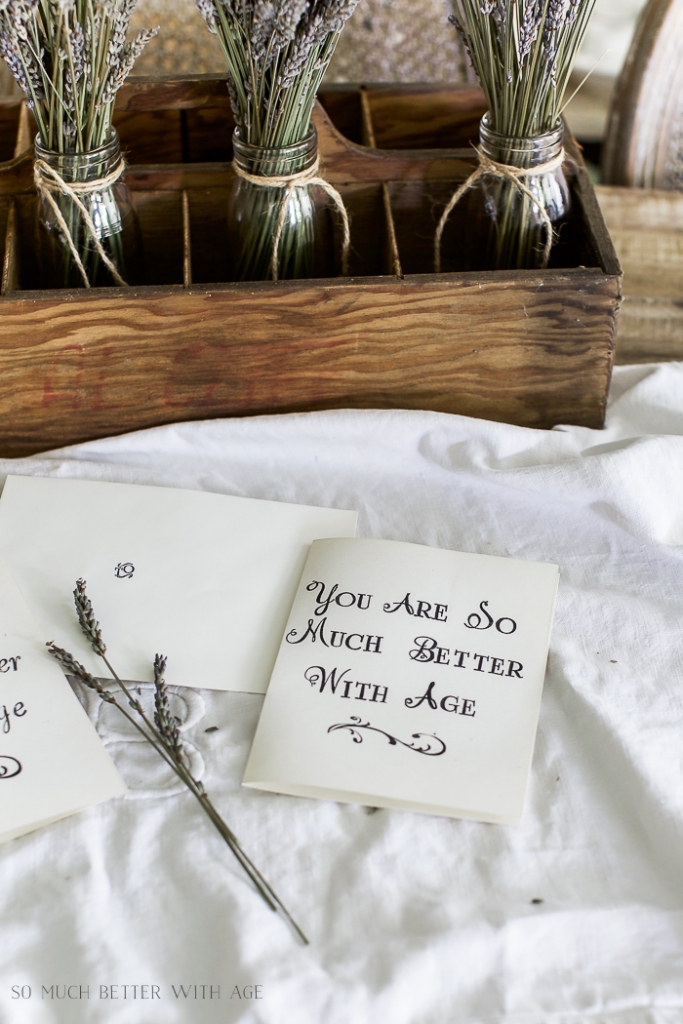 19
You Are So
Much Better
With Age
er
ge
SO MUCH BETTER WITH AGE